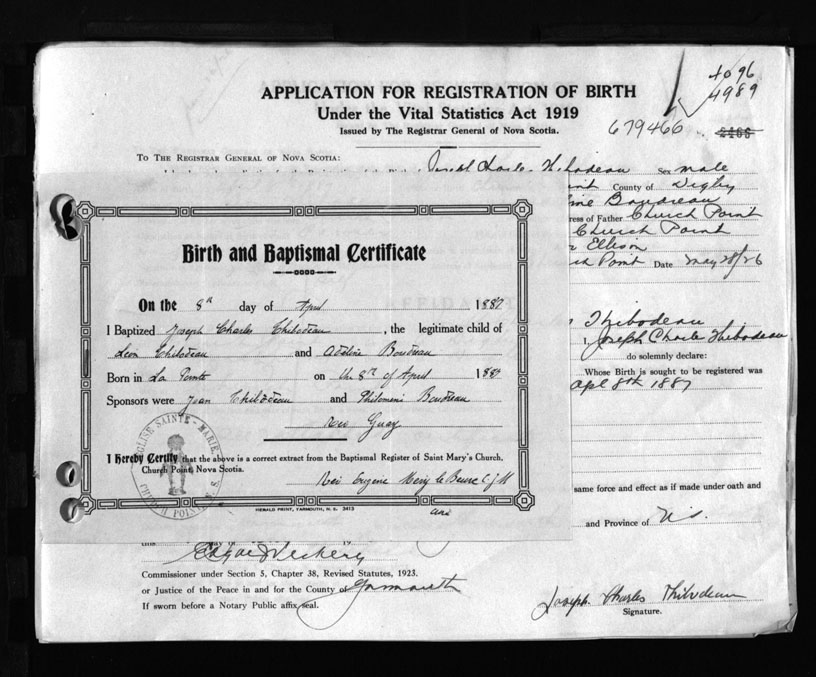 APPLICATION FOR REGISTRATION OF BIRTH
Under the Vital Statistics Act 1919
Issued by The Registrar General of Nova Scotia.
4096
4989
679466
2466
TO THE REGISTRAR GENERAL OF NOVA SCOTIA:
Joseph Charles Thibodeau Sex male
County of Digby
Boudreau
ress of Father Church Point
Church Point
Ellison
Point Date May 28/26
Thibodeau
I, Joseph Charles Thibodeau
do solemnly declare:
Whose Birth is sought to be registered was
Apl 8th 1887
same force and effect as if made under oath and
and Province of N.S.
Birth and Baptismal Certificate
On the 8th day of April 1887
I Baptized Joseph Charles Thibodeau, the legitimate child of
Leon Thibodeau and Adeline Boudreau
Born in La Pointe on the 8th of April 1887
Sponsors were Jean Thibodeau and Philomene Boudreau
Rev Guay
I Hereby Certify that the above is a correct extract from the Baptismal Register of Saint Mary's Church,
Church Point Nova Scotia.
Rev Eugene
EGLISE SAINTE-MARIE
CHURCH POINT N. S.
HERALD PRINT, YARMOUTH, N. S. 3413
day of
Commissioner under Section 5, Chapter 38, Revised Statutes, 1923.
or Justice of the Peace in and for the County of Yarmouth
If sworn before a Notary Public affix seal.
Joseph Charles Thibodeau
Signature.